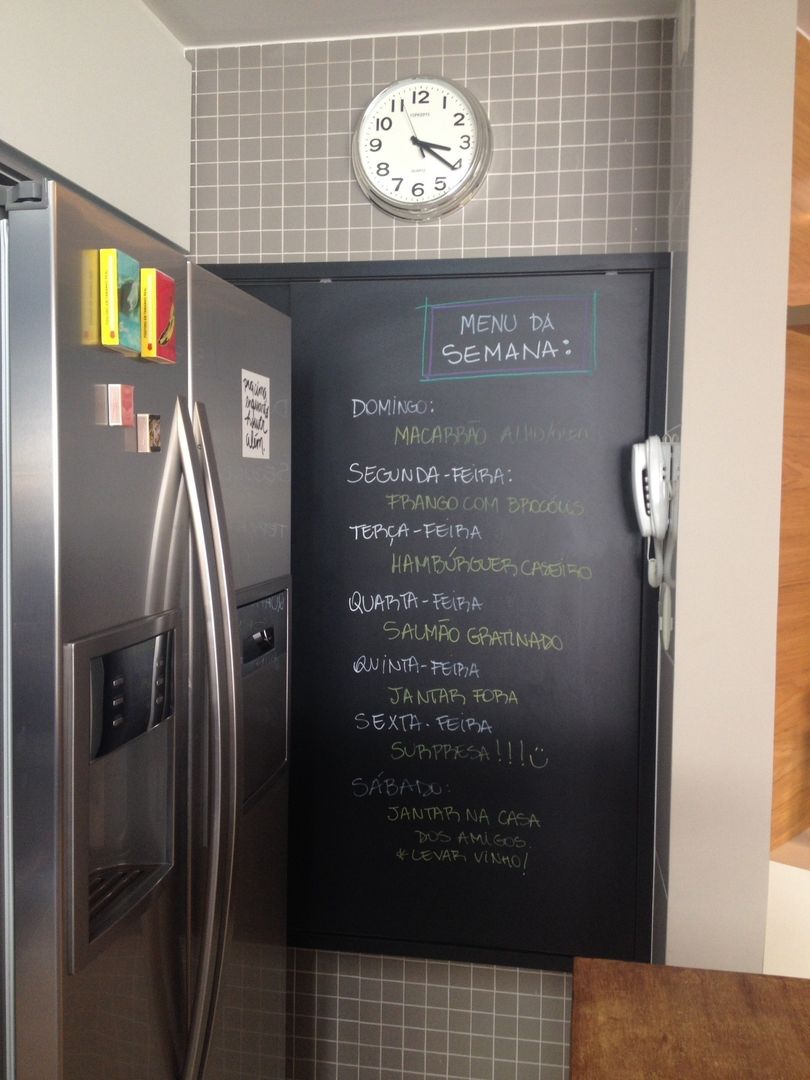 12
11
10
2
8
3
7
6
5
QUARTZ
MENU DA
SEMANA:
DOMINGO:
MACARRÃO ALHO/ÓLEO
SEGUNDA-FEIRA:
FRANGO COM BROCÓLIS
TERÇA-FEIRA
HAMBÚRGUER CASEIRO
QUARTA-FEIRA
SALMÃO GRATINADO
QUINTA-FEIRA
JANTAR FORA
SEXTA-FEIRA
SURPRESA!!!
SÁBADO:
JANTAR NA CASA
DOS AMIGOS.
*LEVAR VINHO!